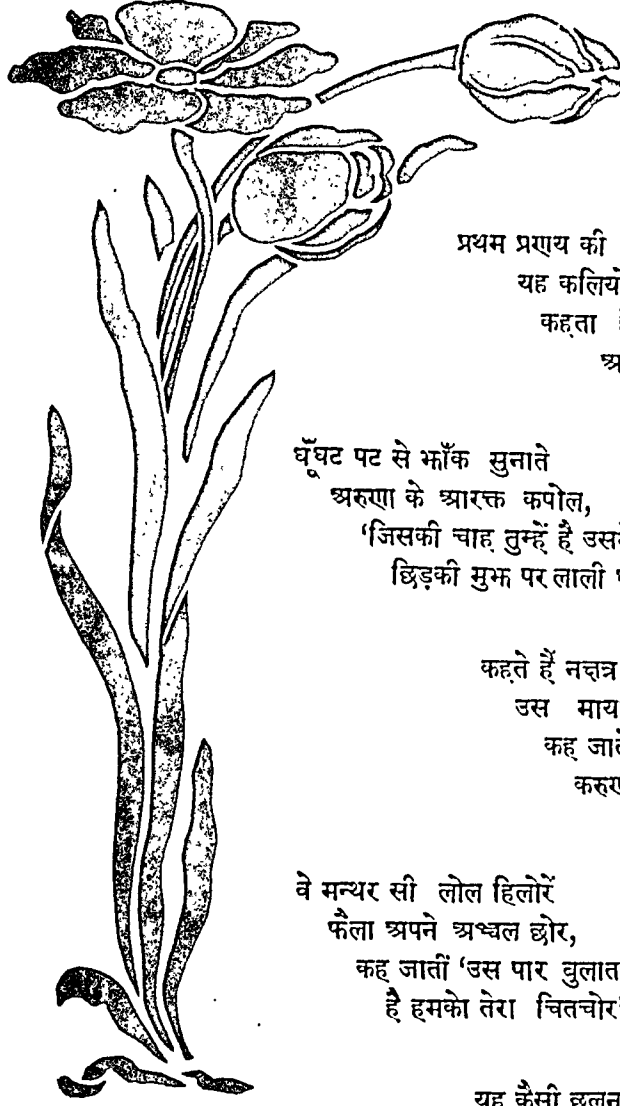 प्रथम प्रणय की
यह कलियो
कहता
घूँघट पट से झाँक सुनाते
अरुणा के आरक्त कपोल,
'जिसकी चाह तुम्हें है उसने
छिड़की मुझ पर लाली
कहते हैं नक्षत्र
उस माय
कह जाते
करुण
वे मन्थर सी लोल हिलोरें
फैला अपने अञ्चल छोर,
कह जातीं 'उस पार बुलाता
है हमको तेरा चितचोर'
यह कैसी छलना